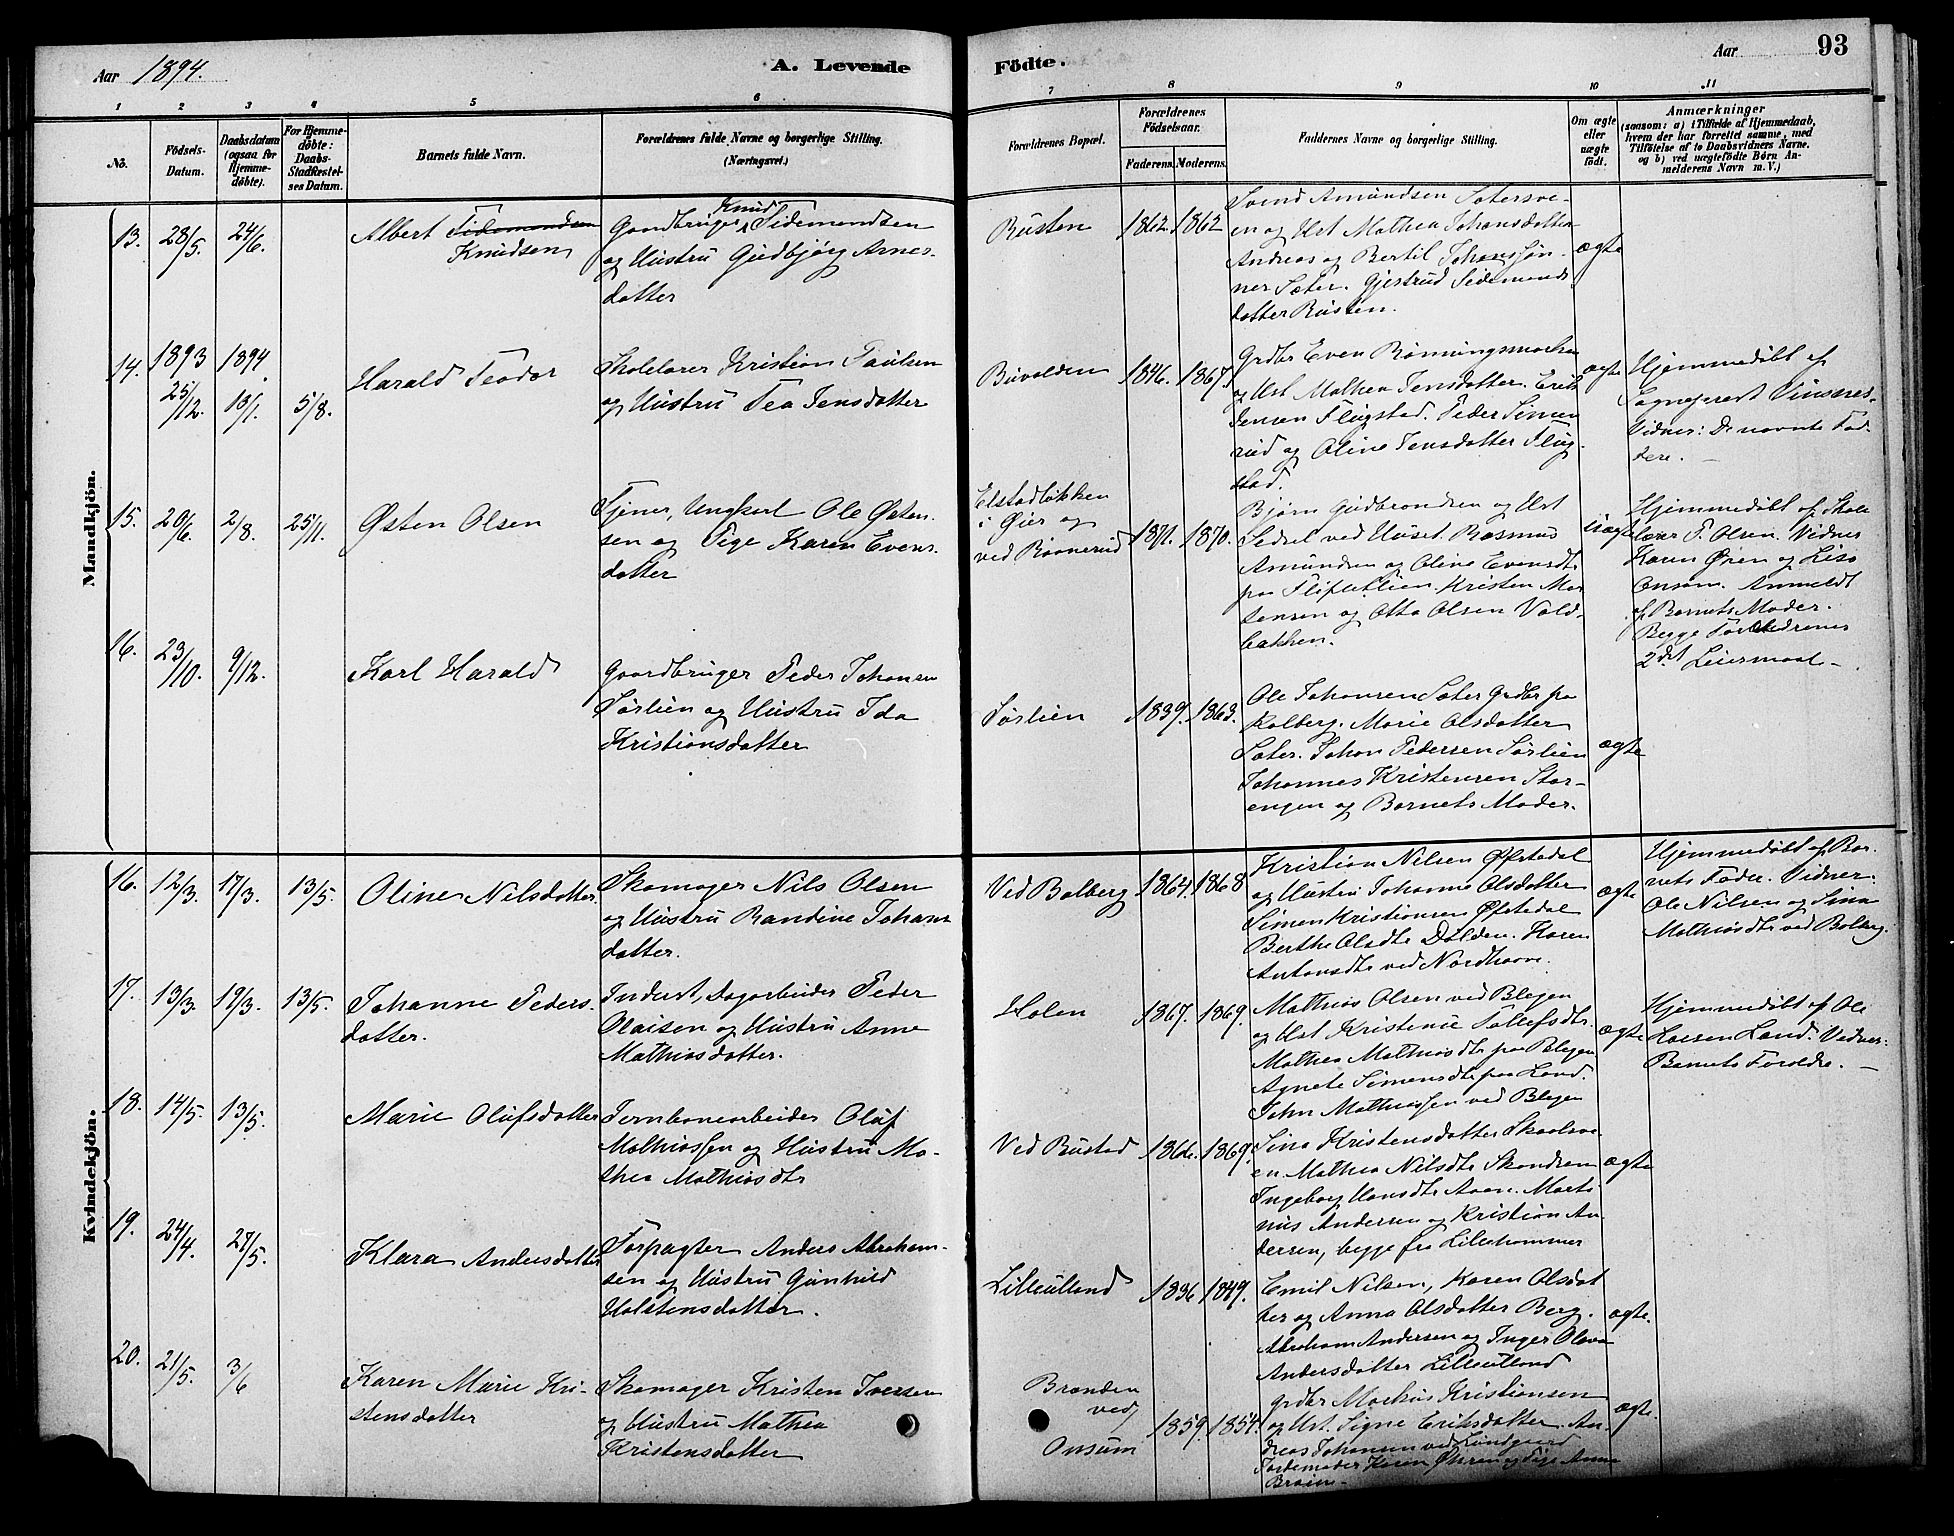 Aar 1894.
A. Levende
Födte.
Aar
93
1 2 3 4 5 6 7 8 9 10 11
No.
Födsels-
Datum.
Daabsdatum
(ogsaa for
Hjemme-
döbte).
For Hjemme-
döbte:
Daabs-
Stadfæstel-
ses Datum.
Barnets fulde Navn.
Forældrenes fulde Navne og borgerlige Stilling.
(Næringsvei.)
Forældrenes Bopæl.
Forældrenes
Födselsaar.
Faderens. Moderens.
Faddernes Navne og borgerlige Stilling.
Om ægte
eller
uægte
født.
Anmærkninger
(saasom: a) i Tilfælde af Hjemmedaab,
hvem der har forrettet samme, med
Tilföielse af to Daabsvidners Navne.
og b) ved uægtefödte Börn An-
melderens Navn m. V.)
Mandkjön.
13. 28/5. 24/6.
Albert Tidemandsen
Knudsen
Knud
Gaardbruger Tidemandsen
og Hustru Gudbjørg Arnes-
datter
Rusten
1862. 1862
Svend Amundsen Sætersve-
en og Hst Mathea Johansdatter
Andreas og Bertil Johanssøn-
ner Sæter. Gjertrud Tidemands
datter Rusten.
ægte
14. 1893 25/12. 1894 18/1. 5/8.
Harald Teodor
Skolelærer Kristian Paulsen
og Hustru Tea Jensdatter
Buvolden
1846. 1867.
Grdbr Even Rønningsmoen
og Hst Mathea Jensdatter. Erik
Jensen Flugstad. Peder Simen
rud og Oline Jensdatter Flug
stad.
ægte
Hjemmedøbt af
Sognepræst Vinsnes.
Vidner: De nævnte Fad-
dere. —
15. 20/6. 2/8. 25/11.
Østen Olsen
Tjener, Ungkarl Ole Østen-
sen og Pige Karen Evens-
datter
Elstadløkken
i Øier og
ved Rønnerud
1871. 1870.
Bjørn Gudbrandsen og Hst
Sedsel ved Huset. Rasmus
Amundsen og Oline Evensdtr
paa Kristen Mor
tensen og Otto Olsen Vold-
bakken.
uægte
Hjemmedøbt af Skole
lærer P. Olsen. Vidner
Karen Øien og Lisa
Onsum. Anmeldt
af Barnets Moder.
Begge Forældrenes
2det Leiermaal —
16. 23/10. 9/12.
Karl Harald
Gaardbruger Peder Johansen
Sørlien og Hustru Ida
Kristiansdatter
Sørlien
1839. 1863.
Ole Johansen Sæter Grdbr paa
Kolberg. Marie Olsdatter
Sæter. Johan Pedersen Sørlien
Johannes Kristensen Stor-
engen og Barnets Moder.
ægte
Kvindekjön.
16. 12/3. 17/3. 13/5.
Oline Nilsdatter.
Skomager Nils Olsen
og Hustru Randine Johans
datter.
Ved Bolberg
1864. 1868
Kristian Nilsen Øfstedal
og Hustru Johanne Olsdatter
Simen Kristiansen Øfstedal
Berthe Olsdtr Dølden. Karen
Antonsdtr ved Nordhove.
ægte
Hjemmedøbt af Bar-
nets Fader. Vidner:
Ole Nilsen og Sina
Mathiasdtr ved Bolberg.
17. 13/3. 19/3. 13/5.
Johanne Peders-
datter.
Inderst, Dagarbeider Peder
Olaisen og Hustru Anne
Mathiasdatter.
Holen
1867. 1869.
Mathias Olsen ved Blegen
og Hst Kristense Tollefsdtr.
Mathea Mathiasdtr paa Blegen
Agnete Simensdtr paa Land.
John Mathiassen ved Blegen
ægte
Hjemmedøbt af Ole
Larsen Land. Vidner:
Barnets Forældre. —
18. 14/5. 13/5.
Marie Olufsdatter
Jernbanearbeider Oluf
Mathiassen og Hustru Ma-
thea Mathiasdtr
Ved Bustad
1866. 1869.
Sina Kristensdatter
en. Mathea Nilsdtr Skandsen
Ingeborg Hansdtr Aaen. Marti
nus Andersen og Kristian An
dersen, begge fra Lillehammer
ægte
19. 24/4. 27/5.
Klara Andersdatter
Forpagter Anders Abraham-
sen og Hustru Gunhild
Holstensdatter.
Lilleulland
1836 1849.
Emil Nilsen, Karen Olsdat
ter og Anna Olsdatter Berg.
Abraham Andersen og Inger Olava
Andersdatter Lilleulland
ægte.
20. 21/5. 3/6
Karen Marie Kri-
stensdatter
Skomager Kristen Iversen
og Hustru Mathea
Kristensdatter
Brænden
ved
Onsum
1859. 1854.
Grdbr Markus Kristiansen
og Hst. Signe Eriksdatter. An-
dreas Johansen ved Lundgaard
Jordemoder Karen Øhren og Pige Anne
Braien.
ægte.